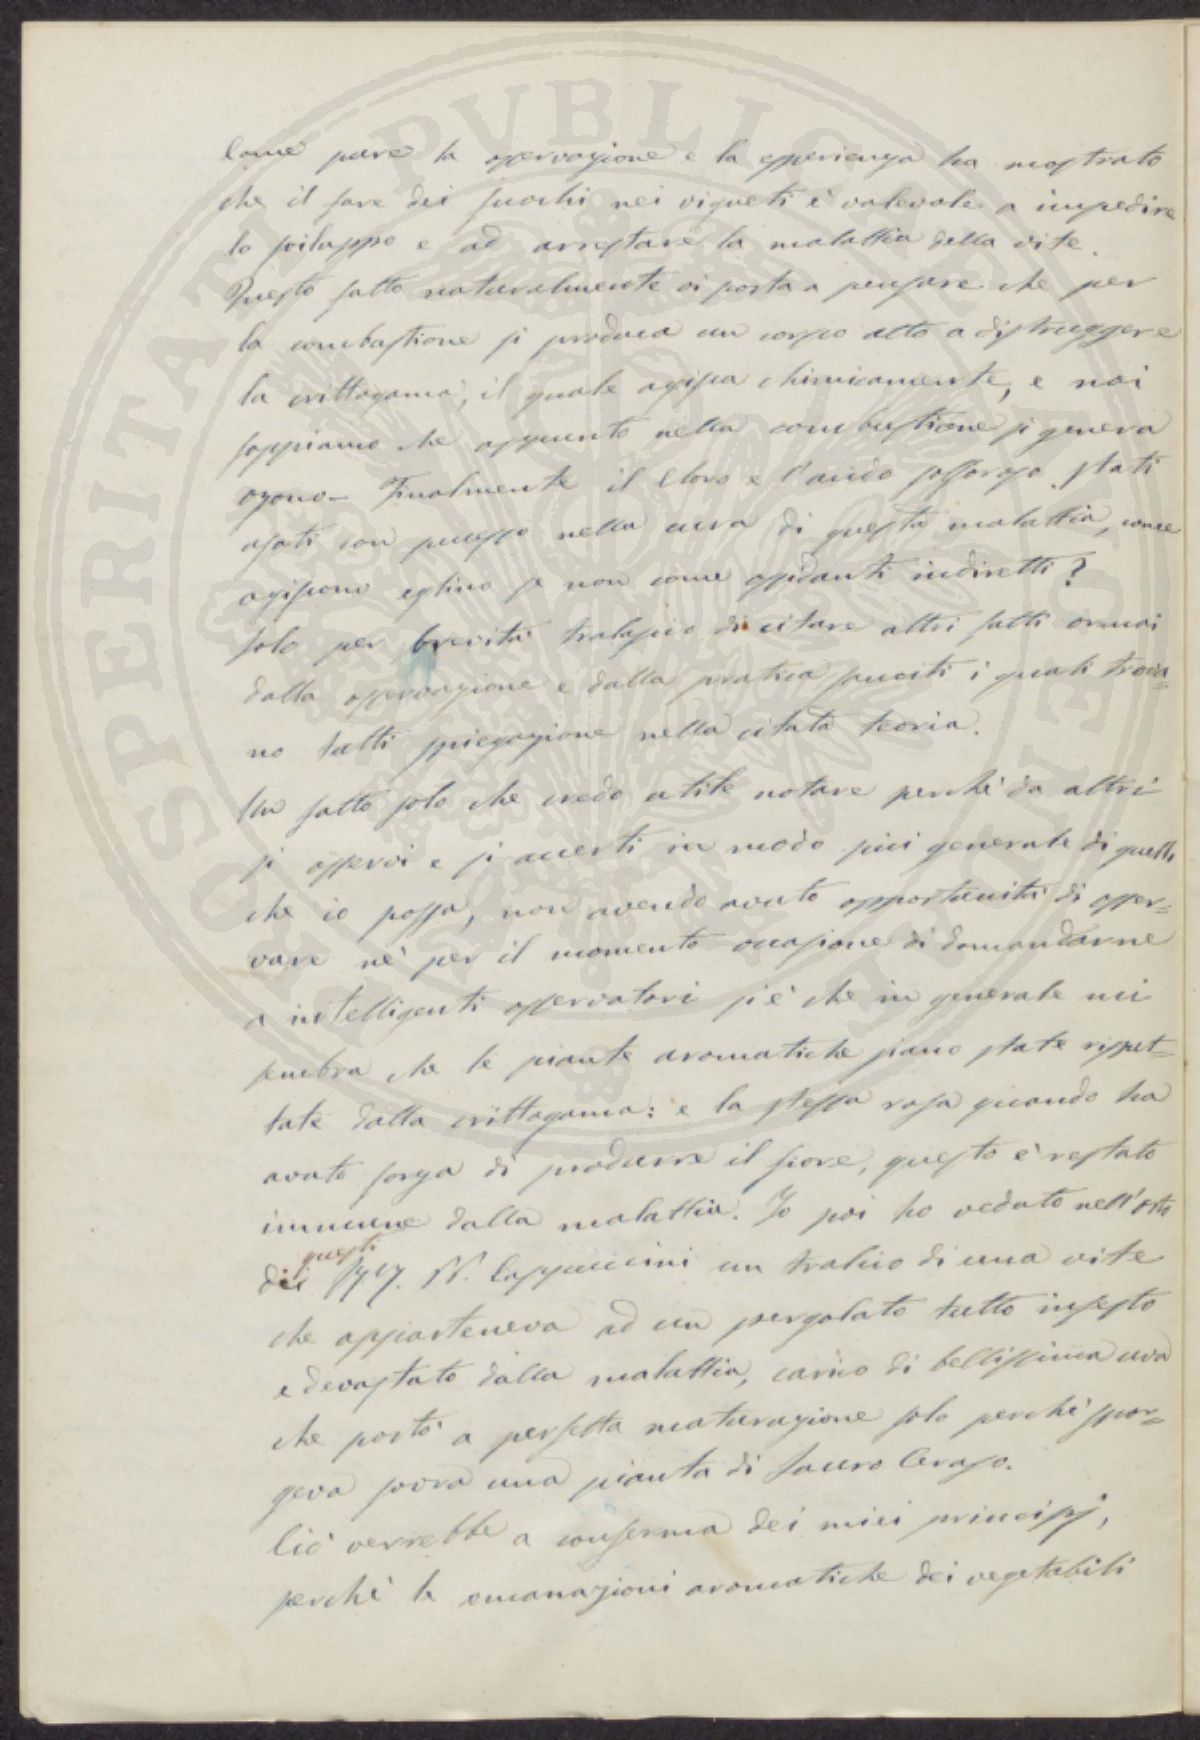 Come pure la osservazione e la esperienza ha mostrato
che il fare dei fuochi nei vigneti è valevole a impedire
lo sviluppo e ad arrestare la malattia della vite.
Questo fatto naturalmente ci porta a pensare che per
la combustione si produca un corpo atto a distruggere
la crittogama, il quale agisca chimicamente, e noi
sappiamo che appunto nella combustione si genera
ozono – Finalmente il Cloro e l'acido solforoso stati
usati con successo nella cura di questa malattia, come
agiscono eglino se non come ossidanti indiretti?
Solo per brevità tralascio di citare altri fatti ormai
dalla osservazione e dalla pratica sanciti i quali trova=
no tutti spiegazione nella citata teoria.
Un fatto solo che credo utile notare perchè da altri
si osservi e si accerti in modo più generale di quello
che io possa, non avendo avuto opportunità di osser=
vare nè per il momento occasione di domandarne
a intelligenti osservatori si è che in generale mi
sembra che le piante aromatiche siano state rispet=
tate dalla crittogama: e la stessa rosa quando ha
avuto forza di produrre il fiore, questo è restato
immune dalla malattia. Io poi ho veduto nell'Orto
questi
dei PP. Cappuccini un tralcio di una vite
che apparteneva ad un pergolato tutto infesto
e devastato dalla malattia, carico di bellissima uva
che portò a perfetta maturazione solo perchè spor=
geva sovra una pianta di Lauro Ceraso.
Ciò verrebbe a conferma dei miei principj,
perchè le emanazioni aromatiche dei vegetabili
PROSPERITATI PVBLICAE